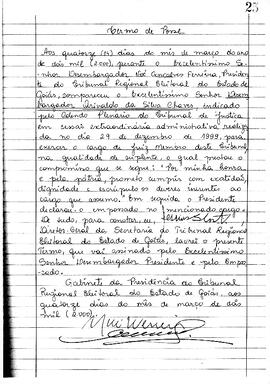 25
Termo de Posse
Aos quatorze (14) dias do mês de março do ano
de dois mil (2.000) perante o Excelentíssimo Se-
nhor Desembargador Noé Gonçalves Ferreira, Presiden-
te do Tribunal Regional Eleitoral do Estado de
Goiás, compareceu o Excelentíssimo Senhor Desem-
bargador Arivaldo da Silva Chaves, indicado
pelo Colendo Plenário do Tribunal de Justiça
em sessão extraordinária administrativa realiza-
da no dia 29 de dezembro de 1999, para
exercer o cargo de Juiz Membro deste Tribunal
na qualidade de suplente, o qual prestou o
compromisso que se segue: "Por minha honra
e pela pátria, prometo cumprir com exatidão,
dignidade e escrúpulo os deveres inerentes ao
cargo que assumo." Em seguida o Presidente
declarou-o empossado no mencionado cargo.
De tudo, para constar, eu,
Diretor-Geral da Secretaria do Tribunal Regional
Eleitoral do Estado de Goiás, lavrei o presente
Termo, que vai assinado pelo Excelentíssimo
Senhor Desembargador Presidente e pelo Empos-
sado.
Gabinete da Presidência do Tribunal
Regional Eleitoral do Estado de Goiás, aos
quatorze dias do mês de março de dois
mil (2.000).